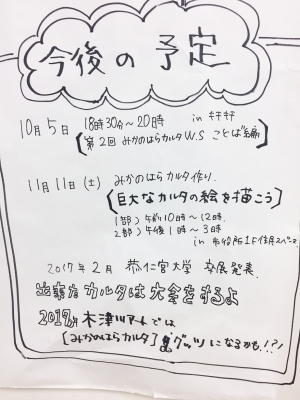 今後の予定
10月5日 18時30分〜20時 in キチキチ
【第2回 みかのはらカルタ W.S ことば編】
11月11日(土) みかのはらカルタ作り.
【巨大なカルタの絵を描こう】
1部)午前10時〜12時.
2部)午後1時〜3時
in 市役所1F住民スペース
2017年2月 恭仁宮大堂 発表.
出来たカルタは大会をするよ
2017 木津川アートでは
[みかのはらカルタ] グッツになるかも!?!